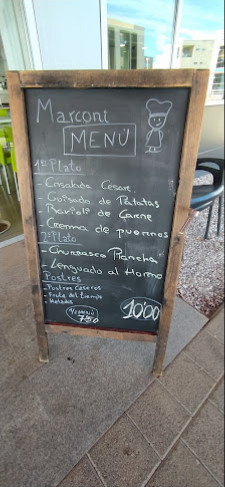 Marconi
MENÚ
1º Plato
- Ensalada Cesare.
- Guisado de Patatas
- Ravioli de Carne
- Crema de puerros
2º Plato
- Churrasco Plancha
- Lenguado al Horno
Postres
- Postres Caseros
- Fruta del tiempo
- Helados
½ MENÚ
7'50
10'00